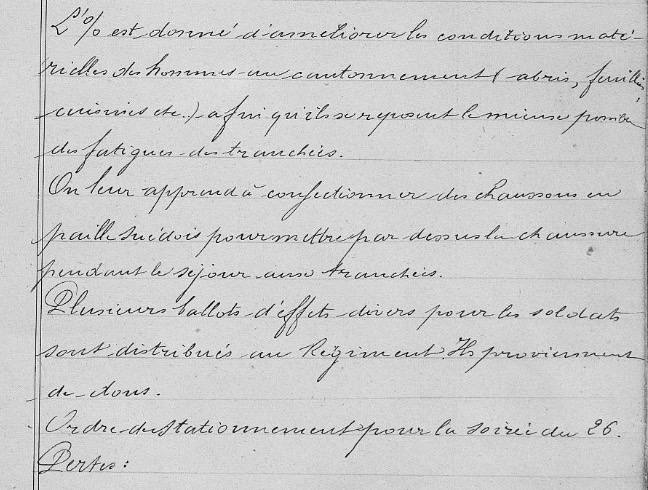 L'% est donné d'améliorer les conditions maté-
rielles des hommes au cantonnement (abris, feuillées,
cuisines etc..) afin qu'ils se reposent le mieux possible
des fatigues des tranchées.
On leur apprend à confectionner des chaussons en
paille suédois pour mettre par dessus la chaussure
pendant le séjour aux tranchées.
Plusieurs ballots d'effets divers pour les soldats
sont distribués au Régiment. Ils proviennent
de dons.
Ordre de stationnement pour la soirée du 26.
Pertes :